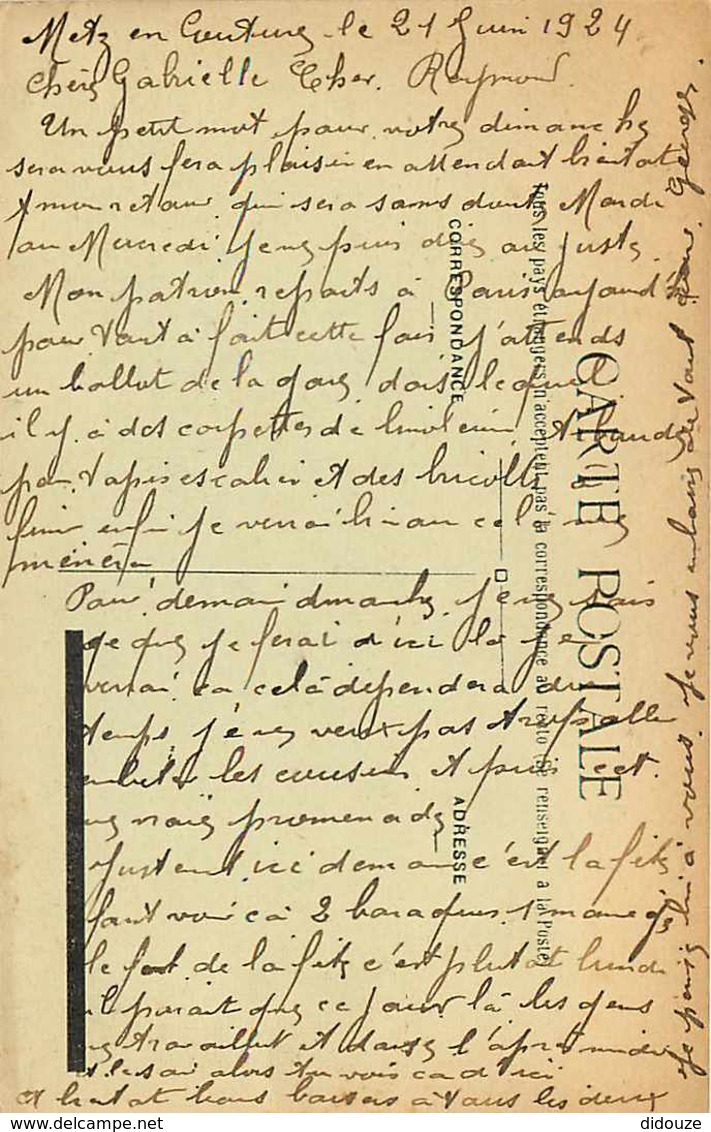 Metz en Couture le 21 Juin 1924
Chère Gabrielle Cher Raymond
Un petit mot pour votre dimanche
sera vous fera plaisir en attendant bientot
mon retour qui sera sans doute Mardi
au Mercredi je ne puis dire au juste
Mon patron reparts à Paris aujourd'h
pour tout à fait cette fois j'attends
un ballot de la gare dans lequel
il y à des carpettes de linoleum
pour tapis escalier et des bricolles
enfin je verrai bien ce
Pour demain dimanche je ne sais
ce que je ferai d'ici la je
verrai ca celà dependera du
temps je ne veux pas trop aller
embeter les cousins et puis cet
une vraie promenade
Justement ici demain c'est la fête
faut voir cà 2 baraques 1 manège
le fort de la fête c'est plutot lundi
il parait que ce jour là les gens
ne travaillent et danse l'après midi
et le soir alors tu vois ca d'ici
et bientot bons baisers à vous les deux
Je pense bien à vous je vous embrasse de tout Georges
CORRESPONDANCE
ADRESSE
Tous les pays étrangers n'acceptent pas la correspondance au recto (Se renseigner à la Poste)
CARTE POSTALE
© didouze